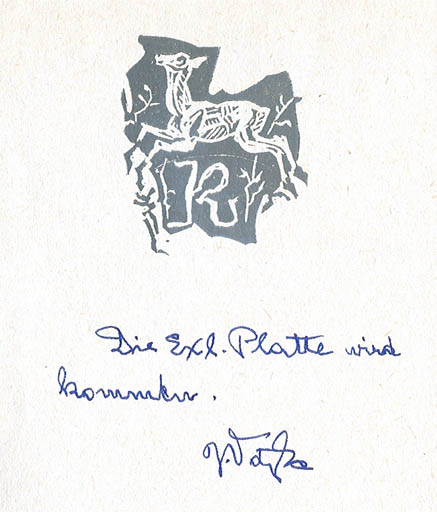 R
Die Exl. Platte wird
kommen.